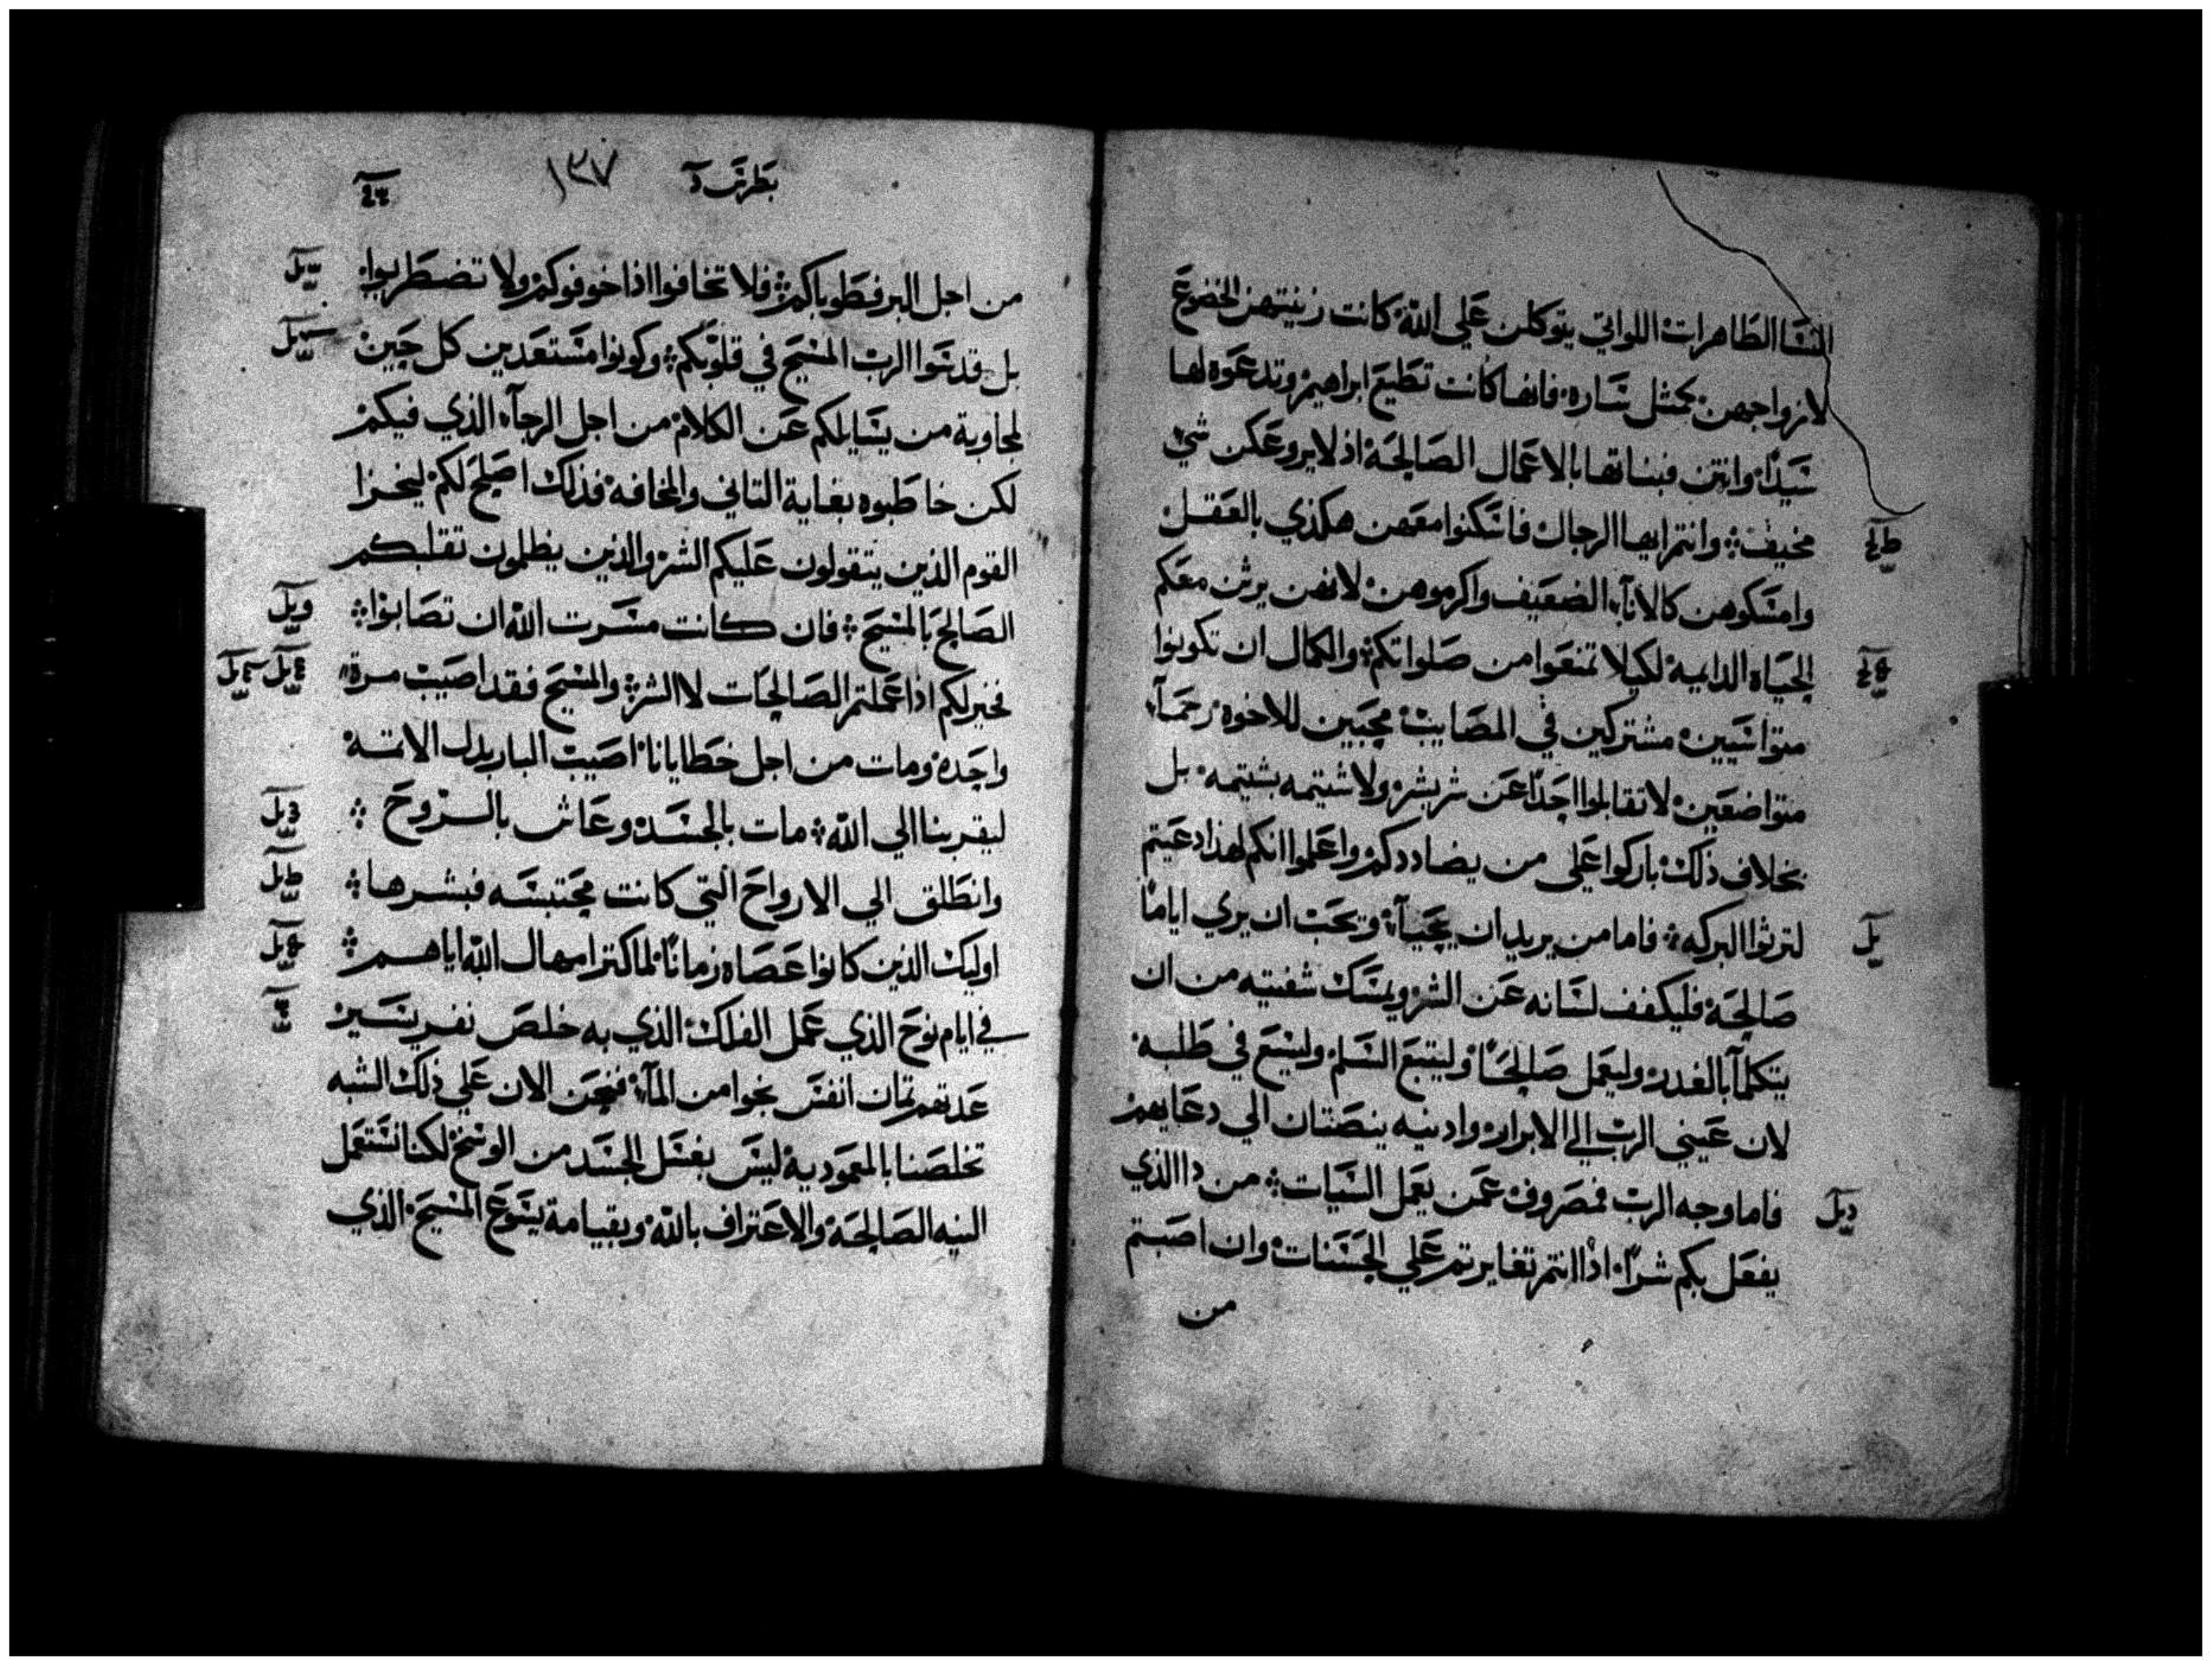 النسا الطاهرات اللواتي يتوكلن علي الله كانت زينتهن الخضوع
لازواجهن كمثل ساره فانها كانت تطيع ابراهيم وتدعوه لها
سيدًا وانتن فبناتها بالاعمال الصالحة اذ لا يروعكن شي
مخيف وانتم ايها الرجال فاسكنوا معهن هكذي بالعقل
وامسكوهن كالانآء الضعيف واكرموهن لانهن يرثن معكم
الحياه الدايمة لكيلا تمنعوا من صلواتكم والكمال ان تكونوا
متواسيين مشتركين في المصايب محبين للاخوه رحمآء
متواضعين لا تقابلوا احدًا عن شر بشر ولا شتيمه بشتيمه بل
بخلاف ذلك باركوا علي من يضاددكم واعلموا انكم لهذا دعيتم
لترثوا البركه فاما من يريد ان يحيآ ويحب ان يري اياما
صالحة فليكفف لسانه عن الشر ويمسك شفتيه من ان
يتكلمآ بالغدر وليعمل صالحًا وليتبع السلم وليسع في طلبه
لان عيني الرب الي الابرار وادنيه ينصتان الي دعايهم
فاما وجه الرب فمصروف عمن يعمل السيات من دا الذي
يفعل بكم شرًا اذا انتم تغايرتم علي الحسنات وان اصبتم
من
بطرس آ
١٣٧
من اجل البر فطوباكم فلا تخافوا اذا خوفوكم ولا تضطربوا
بل قدسوا الرب المسيح في قلوبكم وكونوا مستعدين كل حين
لمجاوبة من يسايلكم عن الكلام من اجل الرجآء الذي فيكم
لكن خاطبوه بغاية التاني والمخافه فذلك اصلح لكم ليخزا
القوم الذين يتقولون عليكم الشر والذين يظلمون تقلبكم
الصالح بالمسيح فان كانت مسرت الله ان تصابوا
فخير لكم اذا عملتم الصالحات لا الشر والمسيح فقد اصيب مرة
واحده ومات من اجل خطايانا اصيب البار بدل الاتمه
ليقربنا الي الله مات بالجسد وعاش بالروح
وانطلق الي الارواح التي كانت محتبسه فبشرها
اوليك الذين كانوا عصاه زمانًا لما كتر امهال الله اياهم
في ايام نوح الذي عمل الفلك الذي به خلص نفر يسير
عدتهم تمان انفس نجوا من المآء فنحن الان علي ذلك الشبه
تخلصنا بالمعمودية ليس بغسل الجسد من الوسخ لكنا نستعمل
النيه الصالحة والاعتراف بالله وبقيامة يسوع المسيح الذي